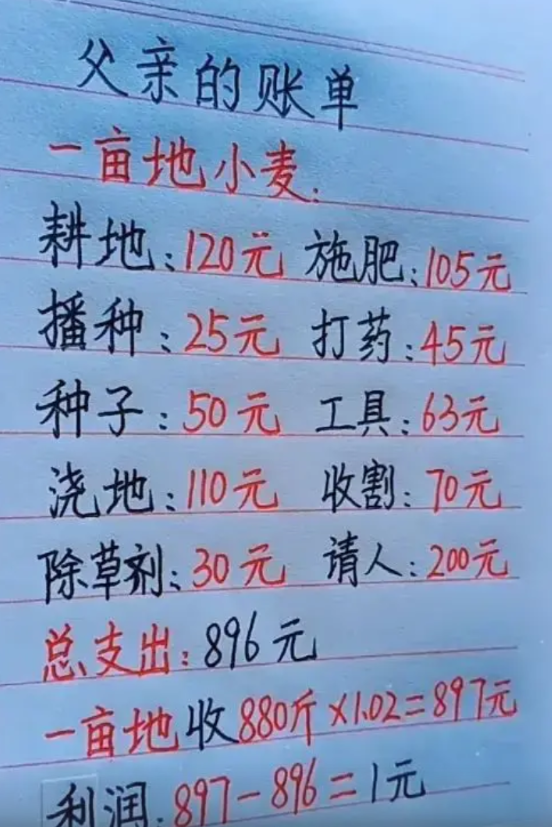 父亲的账单
一亩地小麦:
耕地:120元 施肥:105元
播种:25元 打药:45元
种子:50元 工具:63元
浇地:110元 收割:70元
除草剂:30元 请人:200元
总支出:896元
一亩地收880斤×1.02=897元
利润:897-896=1元